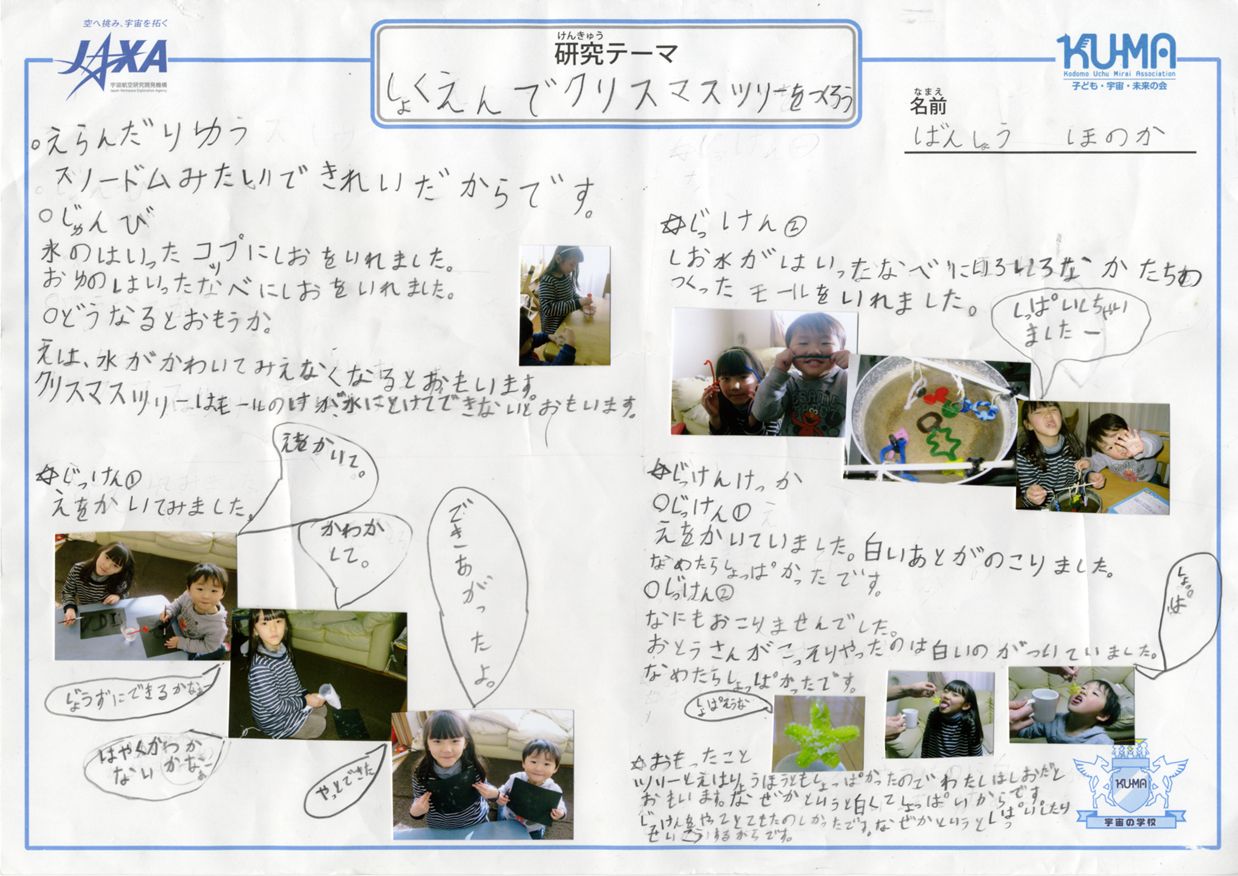 空へ挑み、宇宙を拓く
JAXA
宇宙航空研究開発機構
Japan Aerospace Exploration Agency
けんきゅう
研究テーマ
しょくえんでクリスマスツリーをつくろう
KU-MA
Kodomo Uchu Mirai Association
子ども・宇宙・未来の会
なまえ
名前
ばんしょう ほのか
○えらんだりゆう
スノードムみたいできれいだからです。
○じゅんび
水のはいったコップにしおをいれました。
おゆのはいったなべにしおをいれました。
○どうなるとおもうか。
えは、水がかわいてみえなくなるとおもいます。
クリスマスツリーはモールのけが水にとけてできないとおもいます。
☆じっけん①
えをかいてみました。
えをかいて。
かわかして。
できあがったよ。
じょうずにできるかなー
はやくかわかないかなー。
やっとできた
☆じっけん②
しお水がはいったなべにいろいろなかたちの
つくったモールをいれました。
しっぱいしちゃいましたー
☆じっけんけっか
○じっけん①
えをかいていました。白いあとがのこりました。
なめたらしょっぱかったです。
○じっけん②
なにもおこりませんでした。
おとうさんがこっそりやったのは白いのがついていました。
なめたらしょっぱかったです。
しょっぱそうな
☆おもったこと
ツリーとえはりょうほうともしょっぱかったのでわたしはしおだと
おもいます。なぜかというと白くてしょっぱいからです
じっけんをやってとてもたのしかったです。なぜかというとしっぱいしたり
せいこうするからです。
KU-MA
宇宙の学校